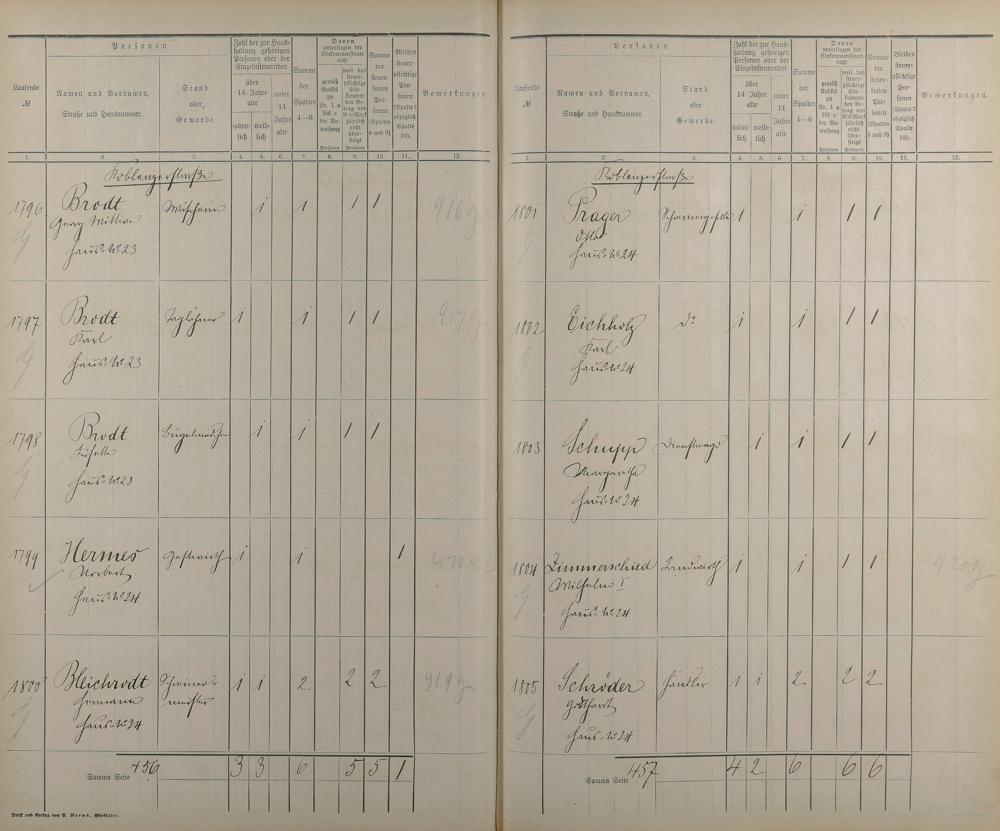 Personen
Zahl der zur Haus-
haltung gehörigen
Personen oder der
Einzelnsteuernden
Davon
unterliegen der
Einkommensteuer
nicht
Summe
der
steuer-
freien
Per-
sonen
(Spalten
8 und 9)
Bleiben
steuer-
pflichtige
Per-
sonen
(Spalte 7
abzüglich
Spalte
10).
Bemerkungen.
Laufende
№
Namen und Vornamen,
Straße und Hausnummer.
Stand
oder
Gewerbe.
über
14 Jahre
alte
unter
14
Jahre
alte
männ-
lich
weib-
lich
Summe
der
Spalten
4—6
1. 2. 3. 4. 5. 6. 7. 8. 9. 10. 11. 12.
Koblenzerstraße
1796 Brodt 1 1 1 1 916
Georg Wittwe
Haus № 23
1797 Brodt Taglöhner 1 1 1 1 917
Karl
Haus № 23
1798 Brodt Bügelmädchen 1 1 1 1
Haus № 23
1799 Hermes Gastwirth 1 1 1
Norbert
Haus № 24
1800 Bleichrodt Schreiner- 1 1 2 2 2 919
Hermann meister
Haus № 24
Summa Seite 456 3 3 6 5 5 1
Druck und Verlag von P. Plaum, Wiesbaden.
Personen
Zahl der zur Haus-
haltung gehörigen
Personen oder der
Einzelnsteuernden
Davon
unterliegen der
Einkommensteuer
nicht
Summe
der
steuer-
freien
Per-
sonen
(Spalten
8 und 9)
Bleiben
steuer-
pflichtige
Per-
sonen
(Spalte 7
abzüglich
Spalte
10).
Bemerkungen.
Laufende
№
Namen und Vornamen,
Straße und Hausnummer.
Stand
oder
Gewerbe.
über
14 Jahre
alte
unter
14
Jahre
alte
männ-
lich
weib-
lich
Summe
der
Spalten
4—6
1. 2. 3. 4. 5. 6. 7. 8. 9. 10. 11. 12.
Koblenzerstraße
1801 Prager Schreinergeselle 1 1 1 1
Otto
Haus № 24
1802 Eichholz do 1 1 1 1
Karl
Haus № 24
1803 Schupp Dienstmagd 1 1 1 1
Margaretha
Haus № 24
1804 Zimmerschied Landwirth 1 1 1 1 920
Wilhelm I
Haus № 24
1805 Schröder Händler 1 1 2 2 2
Gotthard
Haus № 24
Summa Seite 457 4 2 6 6 6